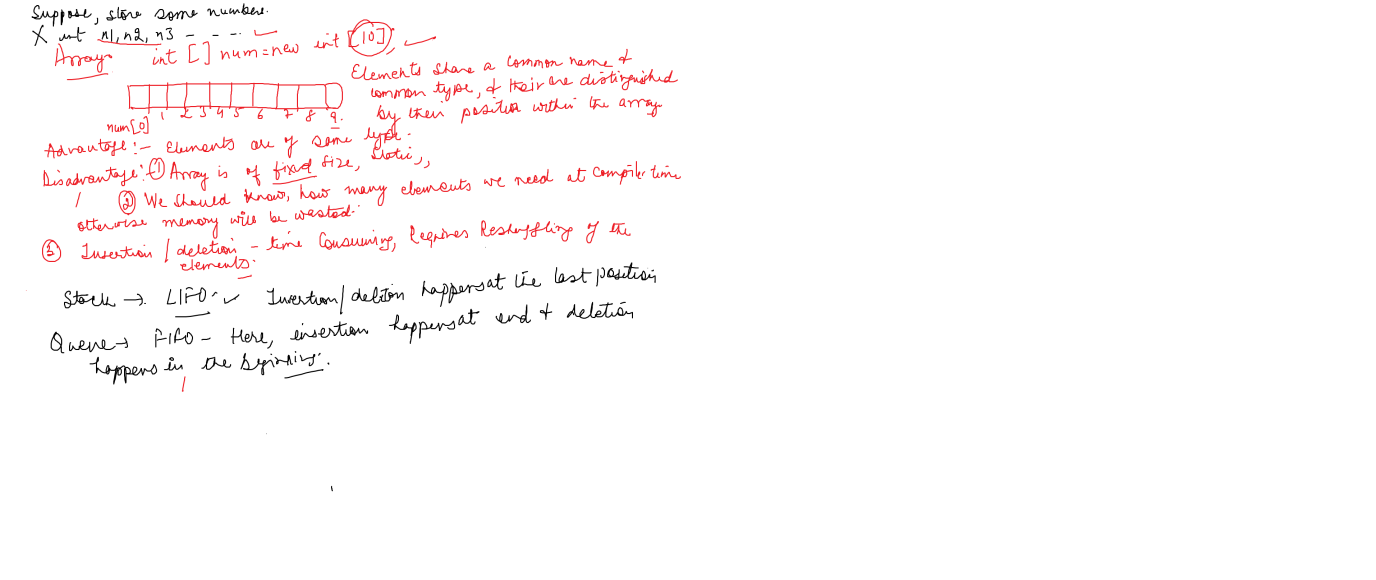 Suppose, store some numbers.
X int n1, n2, n3 - - - -
Array int [] num = new int [10];
Elements share a common name &
common type, & their are distinguished
by their position within the array
num[0] 1 2 3 4 5 6 7 8 9
Advantage:- Elements are of same type.
Disadvantage:- ① Array is of fixed size, static,,
② We should know, how many elements we need at compiler time
otherwise memory will be wasted.
③ Insertion / deletion - time Consuming, Requires Reshuffling of the
elements.
Stack → LIFO. Insertion/deletion happens at the last position
Queue → FIFO - Here, insertion happens at end & deletion
happens in the beginning.